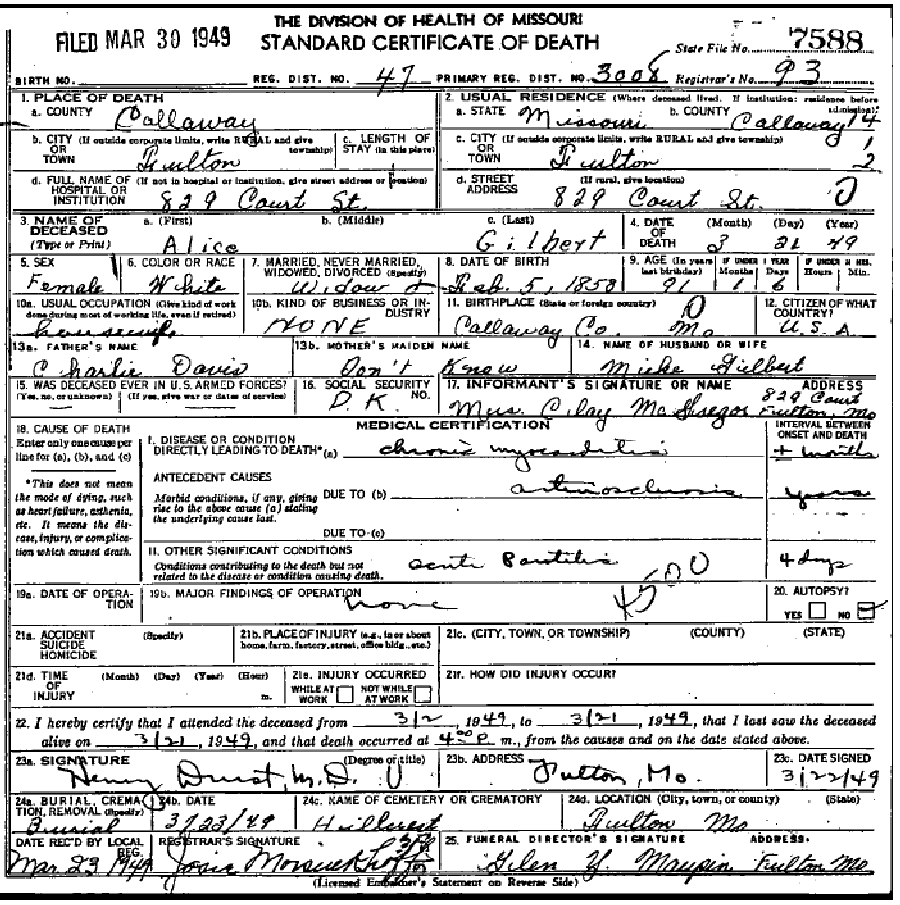 THE DIVISION OF HEALTH OF MISSOURI
FILED MAR 30 1949 STANDARD CERTIFICATE OF DEATH State File No. 7588
BIRTH NO. REG. DIST. NO. 47 PRIMARY REG. DIST. NO. 3008 Registrar's No. 93
1. PLACE OF DEATH 2. USUAL RESIDENCE (Where deceased lived. If institution: residence before admission)
a. COUNTY Callaway a. STATE Missouri b. COUNTY Callaway 14
b. CITY (If outside corporate limits, write RURAL and give township) OR TOWN Fulton c. LENGTH OF STAY (in this place) c. CITY (If outside corporate limits, write RURAL and give township) OR TOWN Fulton 1 2
d. FULL NAME OF (If not in hospital or institution, give street address or location) HOSPITAL OR INSTITUTION 829 Court St. d. STREET (If rural, give location) ADDRESS 829 Court St. 0
3. NAME OF DECEASED (Type or Print) a. (First) Alice b. (Middle) c. (Last) Gilbert 4. DATE OF DEATH (Month) (Day) (Year) 3 21 49
5. SEX Female 6. COLOR OR RACE White 7. MARRIED, NEVER MARRIED, WIDOWED, DIVORCED (Specify) Widow 8. DATE OF BIRTH Feb. 5, 1858 9. AGE (In years last birthday) 91 IF UNDER 1 YEAR Months 1 Days 6 IF UNDER 24 HRS. Hours Min.
10a. USUAL OCCUPATION (Give kind of work done during most of working life, even if retired) housewife 10b. KIND OF BUSINESS OR INDUSTRY NONE 11. BIRTHPLACE (State or foreign country) Callaway Co. Mo 0 12. CITIZEN OF WHAT COUNTRY? U.S.A
13a. FATHER'S NAME Charlie Davis 13b. MOTHER'S MAIDEN NAME Don't Know 14. NAME OF HUSBAND OR WIFE Mike Gilbert
15. WAS DECEASED EVER IN U.S. ARMED FORCES? (Yes, no, or unknown) (If yes, give war or dates of service) 16. SOCIAL SECURITY NO. D.K. 17. INFORMANT'S SIGNATURE OR NAME Mrs. Clay McGregor ADDRESS 829 Court Fulton, Mo
18. CAUSE OF DEATH MEDICAL CERTIFICATION INTERVAL BETWEEN ONSET AND DEATH
Enter only one cause per line for (a), (b), and (c) I. DISEASE OR CONDITION DIRECTLY LEADING TO DEATH* (a) chronic myocarditis months
*This does not mean the mode of dying, such as heart failure, asthenia, etc. It means the disease, injury, or complication which caused death.
ANTECEDENT CAUSES
Morbid conditions, if any, giving rise to the above cause (a) stating the underlying cause last. DUE TO (b) arteriosclerosis years
DUE TO (c)
II. OTHER SIGNIFICANT CONDITIONS
Conditions contributing to the death but not related to the disease or condition causing death. acute Parotitis 4 days
19a. DATE OF OPERATION 19b. MAJOR FINDINGS OF OPERATION none 4500 20. AUTOPSY? YES NO
21a. ACCIDENT SUICIDE HOMICIDE (Specify) 21b. PLACE OF INJURY (e.g., in or about home, farm, factory, street, office bldg., etc.) 21c. (CITY, TOWN, OR TOWNSHIP) (COUNTY) (STATE)
21d. TIME OF INJURY (Month) (Day) (Year) (Hour) m. 21e. INJURY OCCURRED WHILE AT WORK NOT WHILE AT WORK 21f. HOW DID INJURY OCCUR?
22. I hereby certify that I attended the deceased from 3/2, 1949, to 3/21, 1949, that I last saw the deceased
alive on 3/21, 1949, and that death occurred at 4:00 P m., from the causes and on the date stated above.
23a. SIGNATURE (Degree or title) Henry Durst, M.D. 23b. ADDRESS Fulton, Mo. 23c. DATE SIGNED 3/22/49
24a. BURIAL, CREMATION, REMOVAL (Specify) Burial 24b. DATE 3/23/49 24c. NAME OF CEMETERY OR CREMATORY Hillcrest 24d. LOCATION (City, town, or county) (State) Fulton Mo
DATE REC'D BY LOCAL REG. Mar 23 1949 REGISTRAR'S SIGNATURE Josie 25. FUNERAL DIRECTOR'S SIGNATURE ADDRESS Helen Y. Maupin Fulton Mo
(Licensed Embalmer's Statement on Reverse Side)